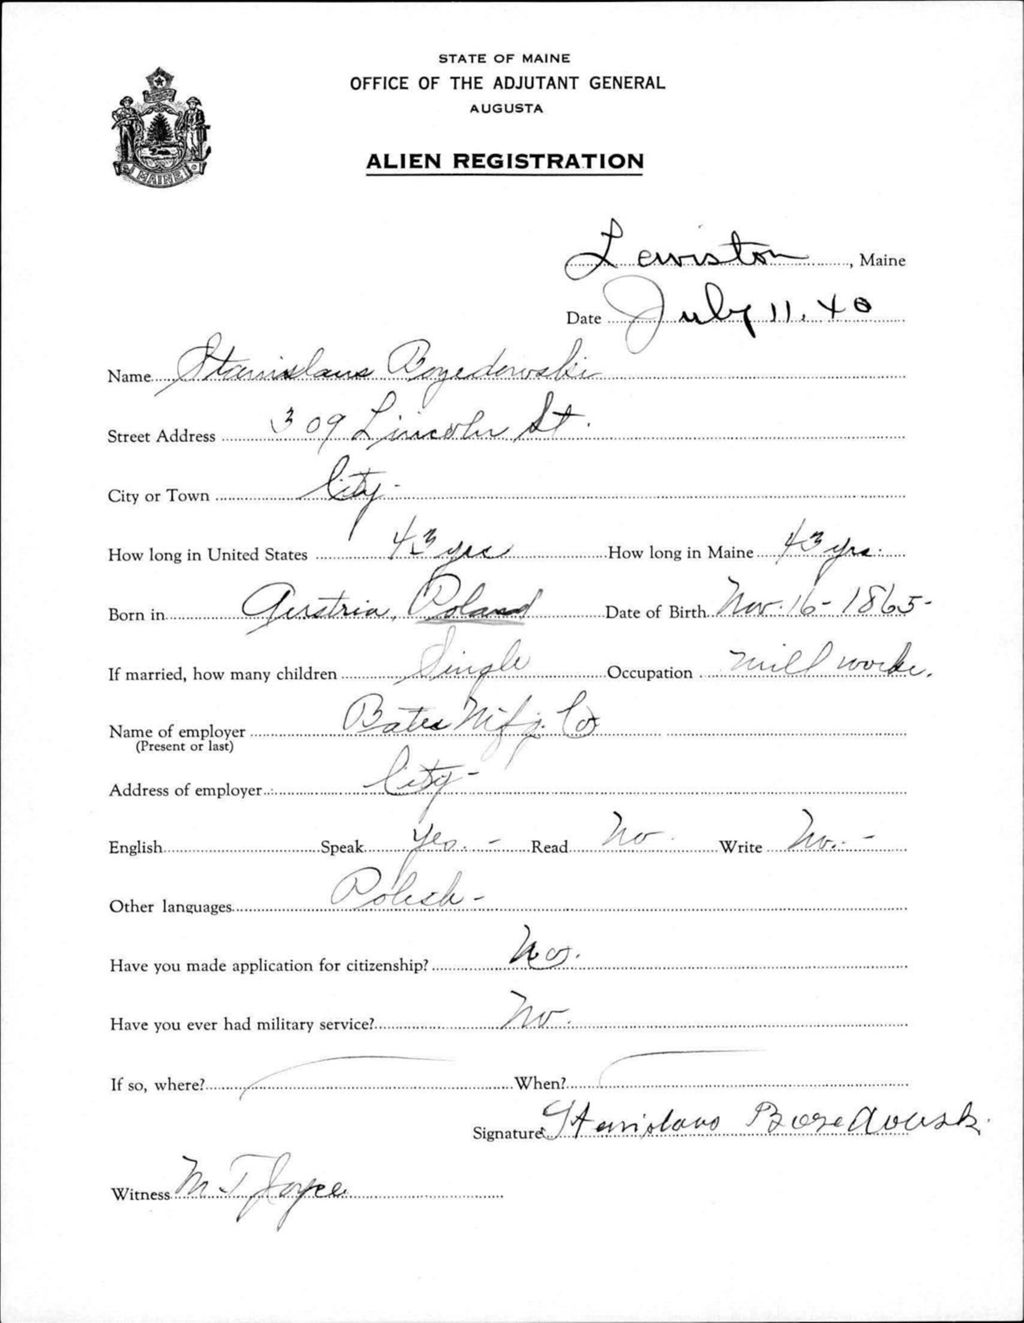 STATE OF MAINE
OFFICE OF THE ADJUTANT GENERAL
AUGUSTA
ALIEN REGISTRATION
MAINE
Lewiston, Maine
Date July 11. 40
Name Stanislaus Bozedowski
Street Address 309 Lincoln St.
City or Town City-
How long in United States 43 yrs How long in Maine 43 yrs.
Born in Austria, Poland Date of Birth Nov. 16-1865-
If married, how many children Single Occupation mill worke.
Name of employer Bates Mfg. Co
(Present or last)
Address of employer City-
English Speak Yes.- Read No Write No.-
Other languages Polish-
Have you made application for citizenship? No.
Have you ever had military service? No.
If so, where? When?
Signature Stanislaus
Witness M T Joyce